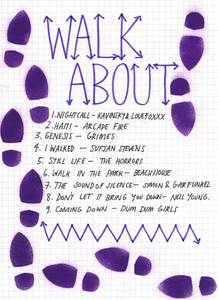 WALK
ABOUT
1. NIGHTCALL - KAVINSKY & LOVEFOXXX
2. HAITI - ARCADE FIRE
3. GENESIS - GRIMES
4. I WALKED - SUFJAN STEVENS
5. STILL LIFE - THE HORRORS
6. WALK IN THE PARK - BEACH HOUSE
7. THE SOUND OF SILENCE - SIMON & GARFUNKEL
8. DON'T LET IT BRING YOU DOWN - NEIL YOUNG.
9. COMING DOWN - DUM DUM GIRLS